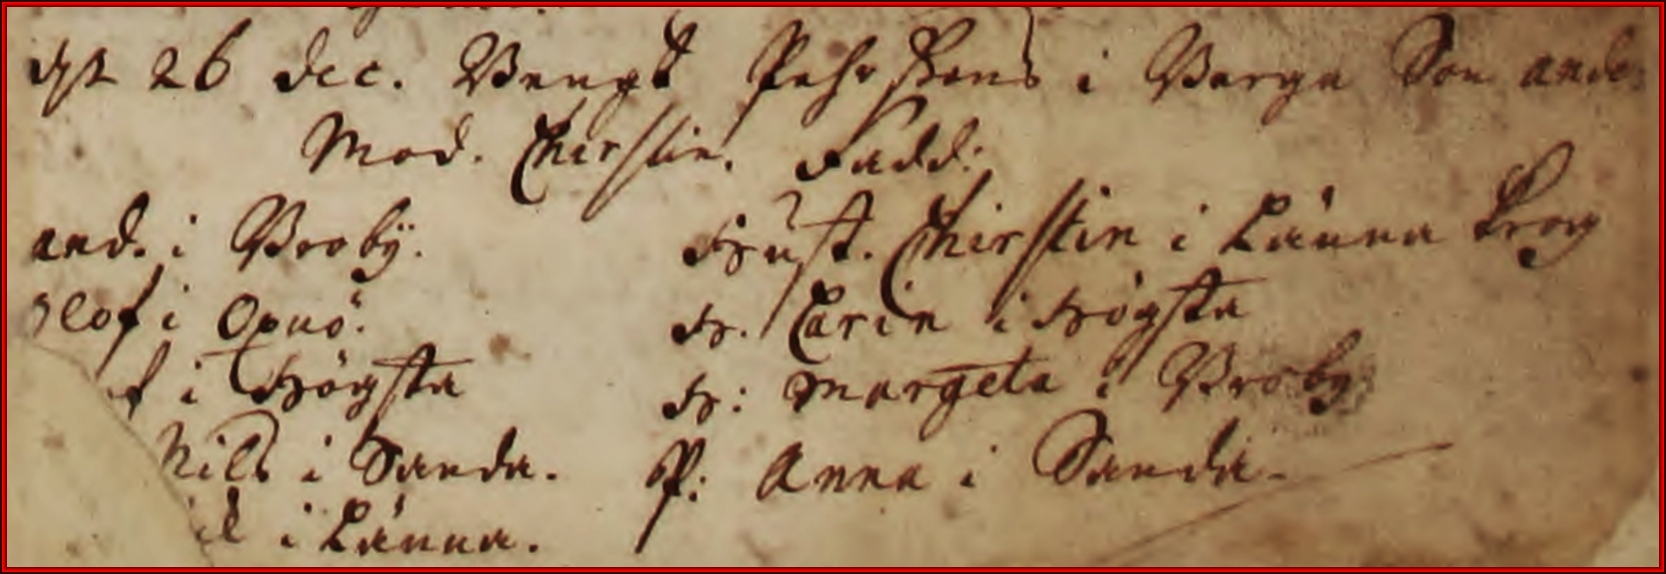 dpt 26 dec. Bengt Pehrssons i Berga Son Ande:
Mod. Chirstin. Fadd:
And. i Broby. Hust. Chirstin i Länna Krog
Olof i Opnö. H. Carin i Högsta
f i Högsta H: Margeta i Broby
Nils i Sanda. P: Anna i Sanda.
i Länna.